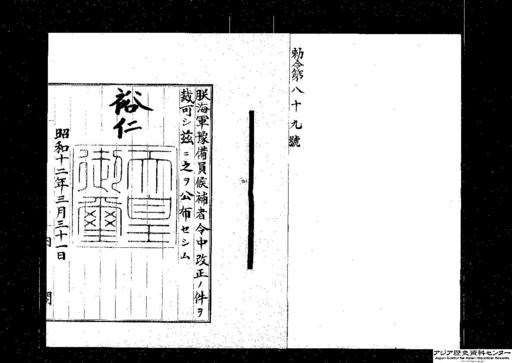 勅令第八十九號
朕海軍豫備員候補者令中改正ノ件ヲ
裁可シ茲ニ之ヲ公布セシム
裕仁
天皇御璽
昭和十二年三月三十一日
内閣
アジア歴史資料センター
Japan Center for Asian Historical Records